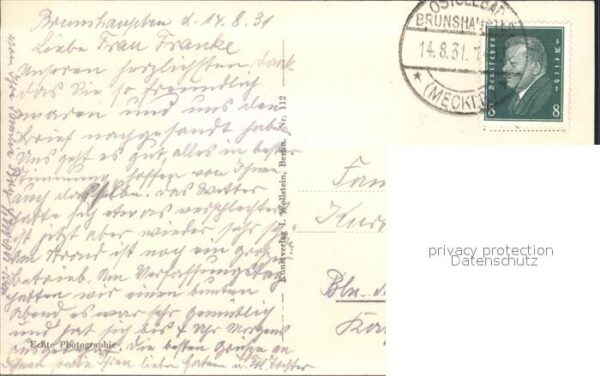 Brunshaupten d. 14.8.31
Liebe Frau Franke
Unseren herzlichsten Dank
das Sie so freundlich
waren und uns den
Brief nachgesandt habe
Uns geht es gut, alles in bester
Stimmung hoffen von Ihnen
auch dasselbe. Das Wetter
hatte sich etwas verschlechtert
ist jetzt aber wieder sehr
Am Strand ist noch ein großer
betrieb. Am Verfassungstag
hatten wir einen bunten
Abend es war sehr gemütlich
und hat sich bis Uhr Morgens
ausgedehnt. Die besten Grüße an
lieben Gatten u. Frl. Tochter
Echte Photographie
Kunstverlag I. Wollstein, Berlin. Nr. 112
OSTSEEBAD
BRUNSHAUPTEN
14.8.31.
(MECKL)
Deutsches Reich
8 8
Fam
Bln.
privacy protection
Datenschutz